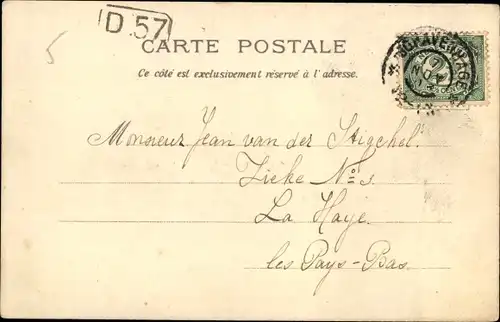 5
D.57
CARTE POSTALE
Ce côté est exclusivement réservé à l'adresse.
'S GRAVENHAGE
Monsieur Jean van der Stigchel.
Zieke No 3.
La Haye.
les Pays-Bas.